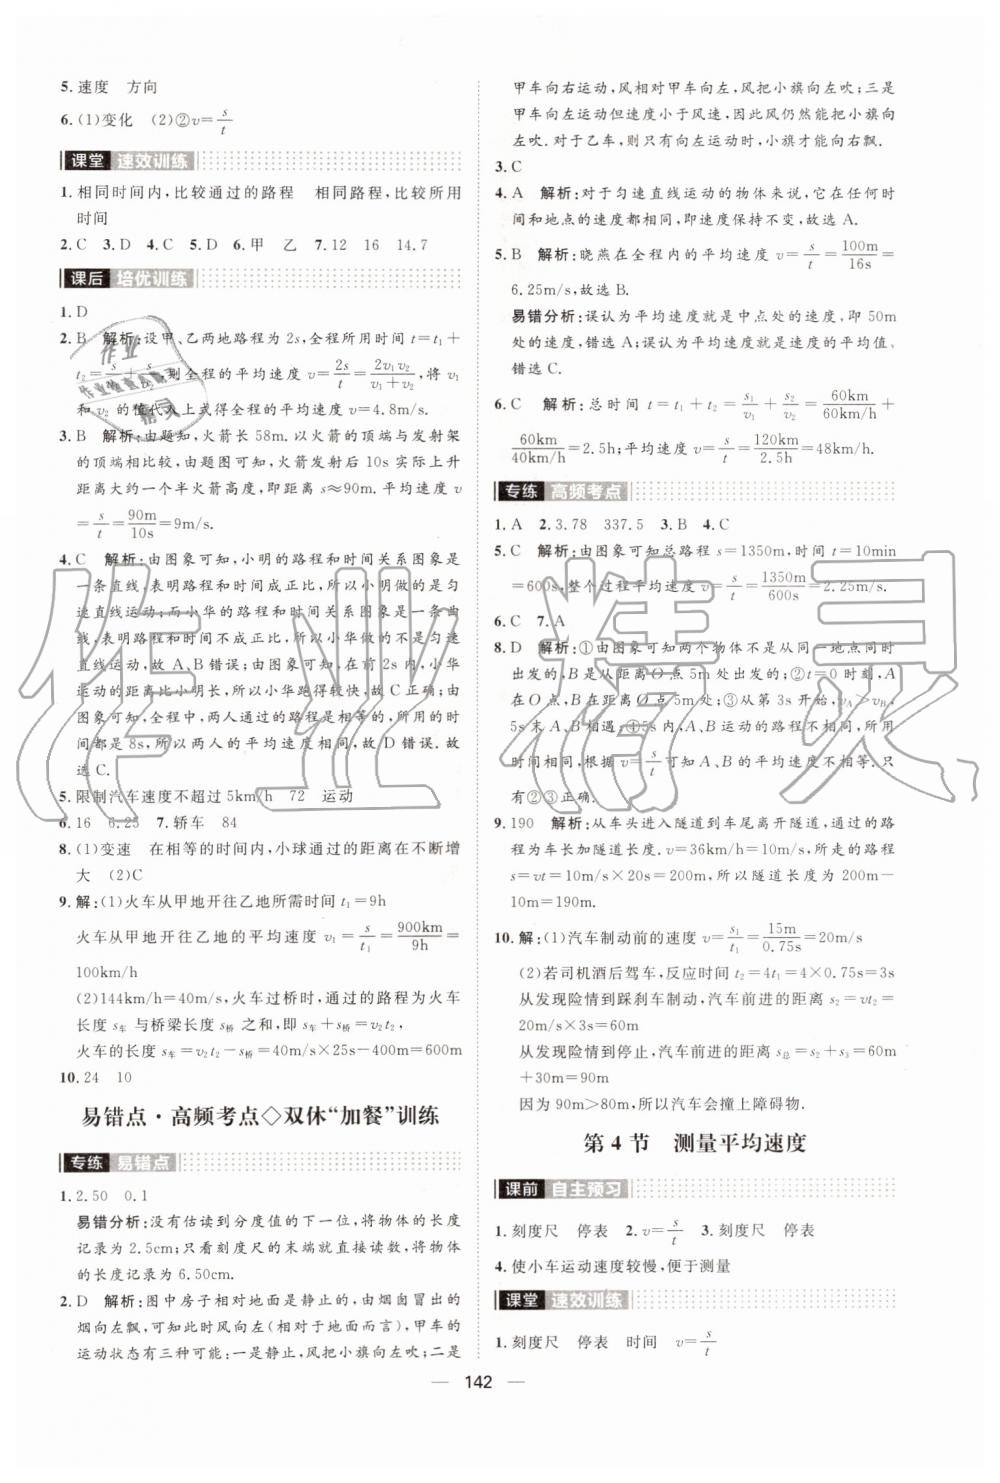 5.速度　方向
6.(1)变化　(2)②v=s/t
课堂 速效训练
1.相同时间内,比较通过的路程　相同路程,比较所用
时间
2.C　3.D　4.C　5.D　6.甲　乙　7.12　16　14.7
课后 培优训练
1.D
2.B　解析:设甲、乙两地路程为2s,全程所用时间 t=t₁+
t₂=s/v₁+s/v₂,则全程的平均速度 v=2s/t=2v₁v₂/(v₁+v₂),将 v₁
和 v₂ 的值代入上式得全程的平均速度 v=4.8m/s.
3.B　解析:由题知,火箭长 58m.以火箭的顶端与发射架
的顶端相比较,由题图可知,火箭发射后 10s 实际上升
距离大约一个半火箭高度,即距离 s≈90m.平均速度 v
=s/t=90m/10s=9m/s.
4.C　解析:由图象可知,小明的路程和时间关系图象是
一条直线,表明路程和时间成正比,所以小明做的是匀
速直线运动;而小华的路程和时间关系图象是一条曲
线,表明路程和时间不成正比,所以小华做的不是匀速
直线运动,故 A、B 错误;由图象可知,在前 2s 内,小华
运动的距离比小明长,所以小华跑得较快,故 C 正确;由
图象可知,全程中,两人通过的路程是相等的,所用的时
间都是 8s,所以两人的平均速度相同,故 D 错误.故
选 C.
5.限制汽车速度不超过 5km/h　72　运动
6.16　6.25　7.轿车　84
8.(1)变速　在相等的时间内,小球通过的距离在不断增
大　(2)C
9.解:(1)火车从甲地开往乙地所需时间 t₁=9h
火车从甲地开往乙地的平均速度 v₁=s/t₁=900km/9h=
100km/h
(2)144km/h=40m/s,火车过桥时,通过的路程为火车
长度 s车 与桥梁长度 s桥 之和,即 s车+s桥=v₂t₂,
火车的长度 s车=v₂t₂-s桥=40m/s×25s-400m=600m
10.24　10
易错点·高频考点◇双休“加餐”训练
专练 易错点
1.2.50　0.1
易错分析:没有估读到分度值的下一位,将物体的长度
记录为 2.5cm;只看刻度尺的末端就直接读数,将物体
的长度记录为 6.50cm.
2.D　解析:图中房子相对地面是静止的,由烟囱冒出的
烟向左飘,可知此时风向左(相对于地面而言),甲车的
运动状态有三种可能:一是静止,风把小旗向左吹;二是
甲车向右运动,风相对甲车向左,风把小旗向左吹;三是
甲车向左运动但速度小于风速,因此风仍然能把小旗向
左吹.对于乙车,则只有向左运动时,小旗才向右飘.
3.C
4.A　解析:对于匀速直线运动的物体来说,它在任何时
间和地点的速度都相同,即速度保持不变,故选 A.
5.B　解析:晓燕在全程内的平均速度 v=s/t=100m/16s=
6.25m/s,故选 B.
易错分析:误认为平均速度就是中点处的速度,即 50m
处的速度,错选 A;误认为平均速度就是速度的平均值,
错选 C.
6.C　解析:总时间 t=t₁+t₂=s₁/v₁+s₂/v₂=60km/60km/h+
60km/40km/h=2.5h;平均速度 v=s/t=120km/2.5h=48km/h.
专练 高频考点
1.A　2.3.78　337.5　3.B　4.C
5.C　解析:由图象可知总路程 s=1350m,时间 t=10min
=600s,整个过程平均速度 v=s/t=1350m/600s=2.25m/s.
6.C　7.A
8.D　解析:①由图象可知两个物体不是从同一地点同时
出发的,B 是从距离 O 点 5m 处出发的;②t=0 时刻,A
在 O 点,B 在距离 O 点 5m 处;③从第 3s 开始,vA>vB,
5s 末 A、B 相遇;④5s 内,A、B 运动的路程不相同,所用
时间相同,根据 v=s/t 可知 A、B 的平均速度不相等.只
有②③正确.
9.190　解析:从车头进入隧道到车尾离开隧道,通过的路
程为车长加隧道长度.v=36km/h=10m/s,所走的路程
s=vt=10m/s×20s=200m,所以隧道长度为 200m-
10m=190m.
10.解:(1)汽车制动前的速度 v=s₁/t₁=15m/0.75s=20m/s
(2)若司机酒后驾车,反应时间 t₂=4t₁=4×0.75s=3s
从发现险情到踩刹车制动,汽车前进的距离 s₂=vt₂=
20m/s×3s=60m
从发现险情到停止,汽车前进的距离 s总=s₂+s₃=60m
+30m=90m
因为 90m>80m,所以汽车会撞上障碍物.
第 4 节　测量平均速度
课前 自主预习
1.刻度尺　停表　2.v=s/t　3.刻度尺　停表
4.使小车运动速度较慢,便于测量
课堂 速效训练
1.刻度尺　停表　时间　v=s/t
— 142 —
作业精灵